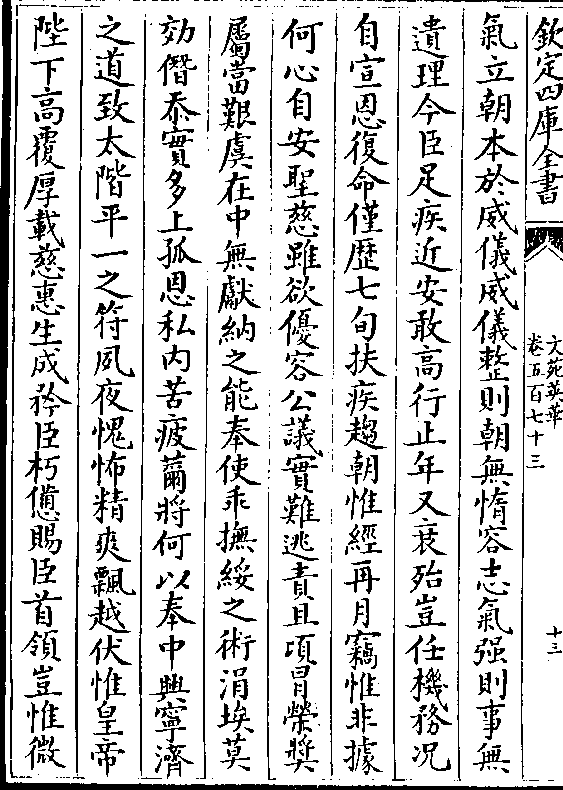 欽定四庫全書
文苑英華
卷五百七十三
十三
氣立朝本於威儀威儀整則朝無惰容志氣强則事無
遺理今臣足疾近安敢高行止年又衰殆豈任機務况
自宣恩復命僅歴七旬扶疾趨朝惟經再月竊惟非據
何心自安聖慈雖欲優容公議實難逃責且項冒榮奬
屬當艱虞在中無獻納之能奉使乖撫綏之術涓埃莫
効僭忝實多上孤恩私内苦疲薾將何以奉中興寧濟
之道致太階平一之符夙夜愧怖精爽飄越伏惟皇帝
陛下高覆厚載慈惠生成矜臣朽憊賜臣首領豈惟微